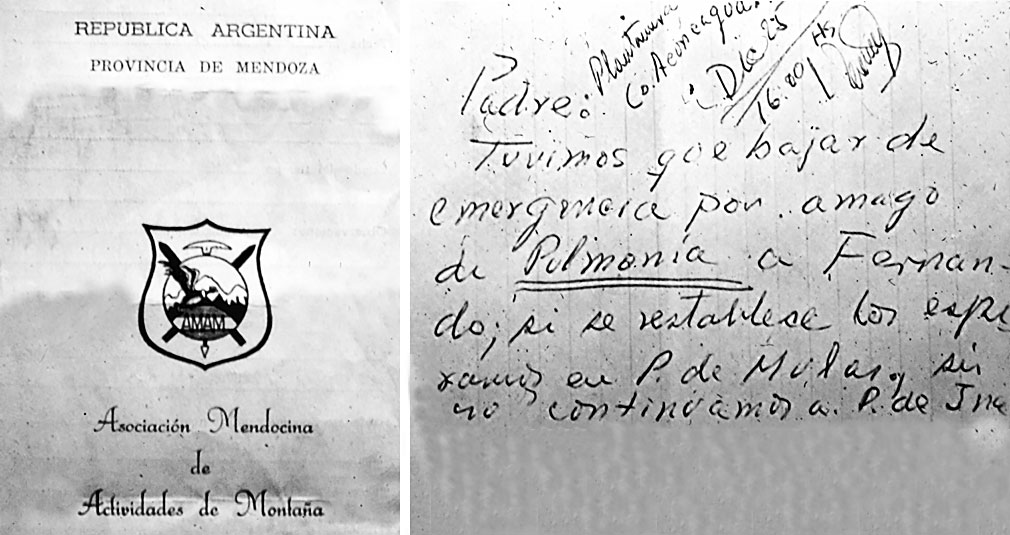 REPUBLICA ARGENTINA
PROVINCIA DE MENDOZA
AMAM
Asociación Mendocina
de
Actividades de Montaña
Co. Aconcagua.
Dic 25
16.00 Hs
Padre:
Tuvimos que bajar de
emergencia por amago
de Pulmonía a Fernan-
do; si se restablece los espe
ramos en P. de Mulas, sin
no continuamos a P. de Inc